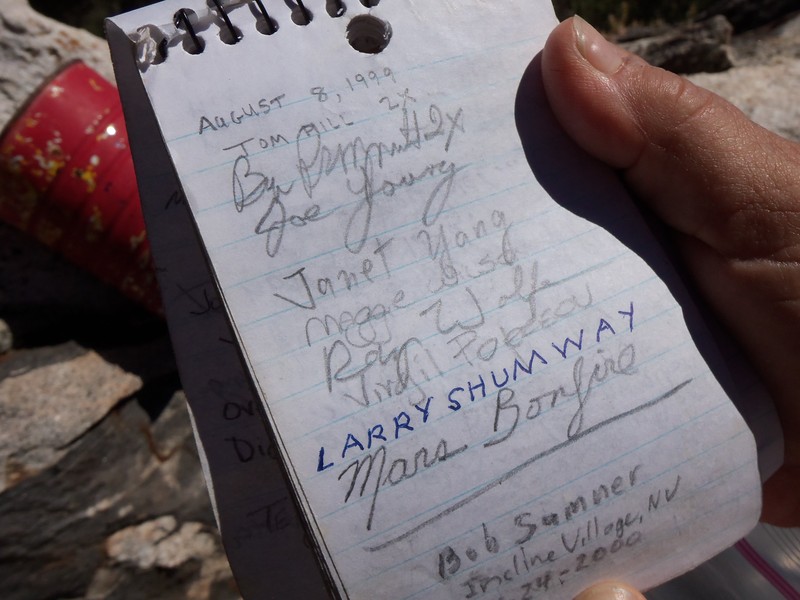 AUGUST 8, 1999
TOM HILL 2X
2X
Joe Young
Janet Yang
Meggie
Ray Wolfe
Virgil
LARRY SHUMWAY
Mars Bonfire
Bob Sumner
Incline Village, NV
24-2000